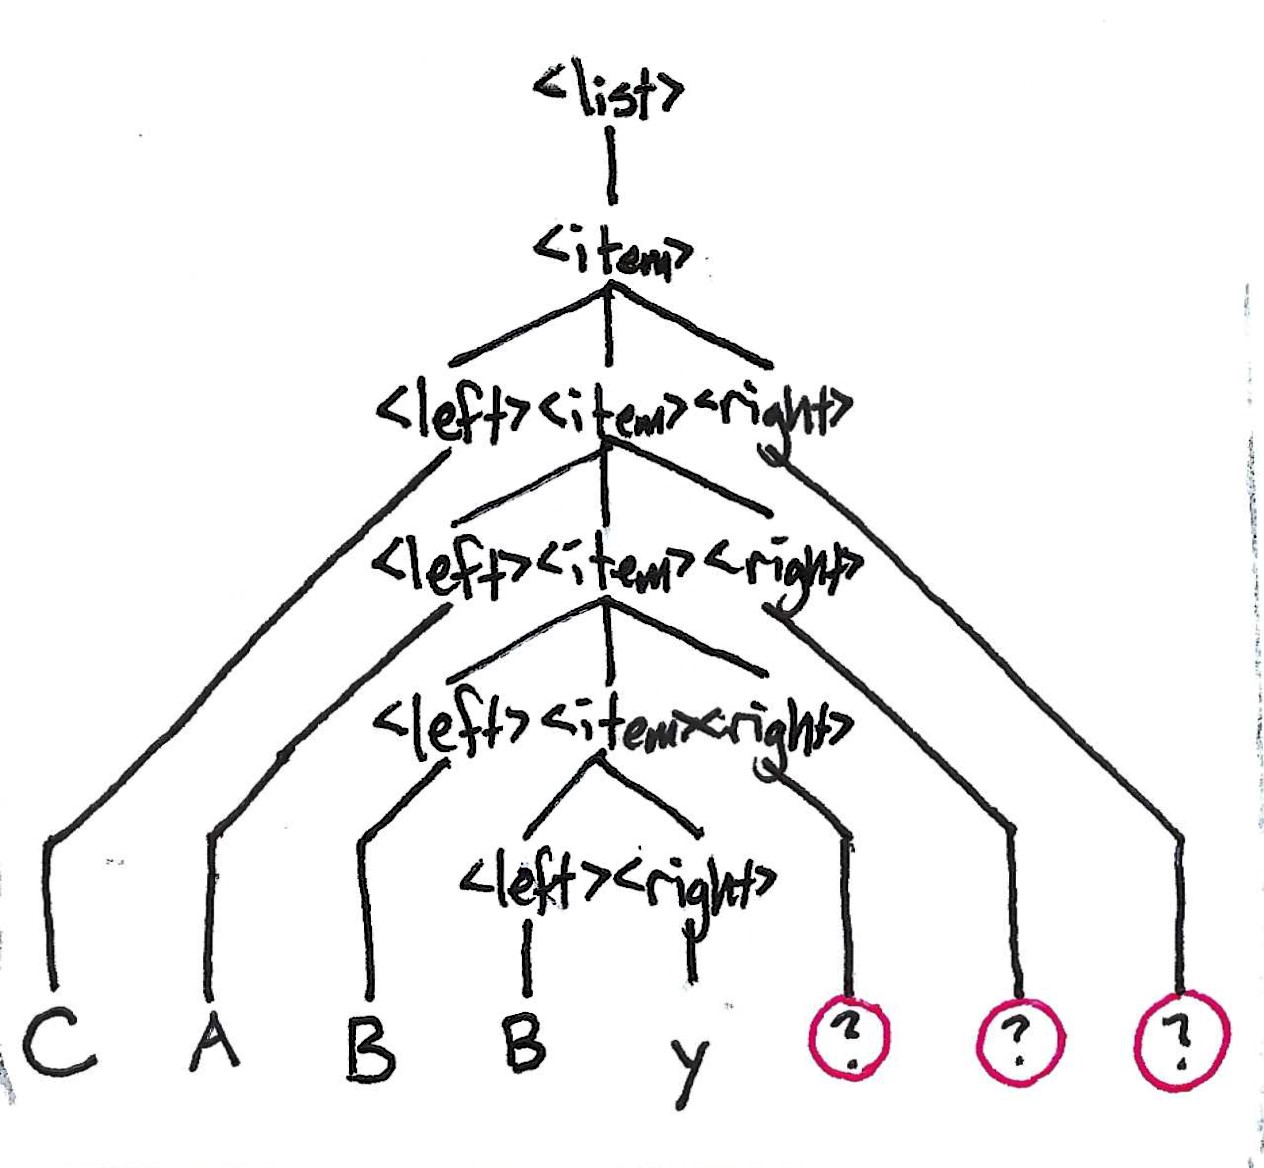 <list>
<item>
<left><item><right>
<left><item><right>
<left><item><right>
<left><right>
C A B B y ? ? ?